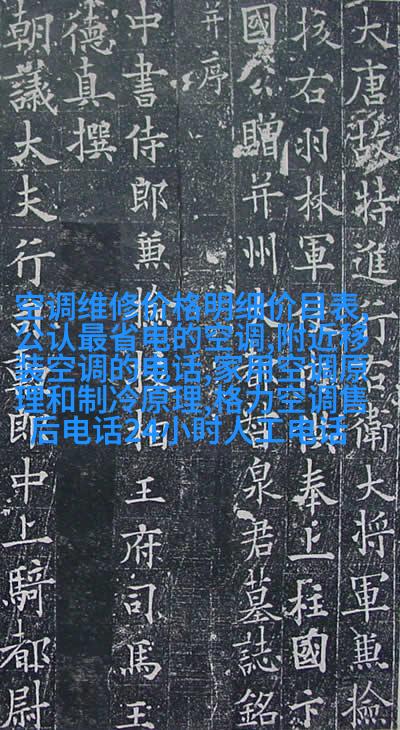 大唐故特進行右衛大將軍兼檢
校右羽林軍奉上柱國卞
國公贈并州泉君墓誌銘
并序
中書侍郎兼檢校相王府司馬王
德真撰
朝議大夫行勳郎中上騎都尉
空调维修价格明细价目表,
公认最省电的空调,附近移
装空调的电话,家用空调原
理和制冷原理,格力空调售
后电话24小时人工电话